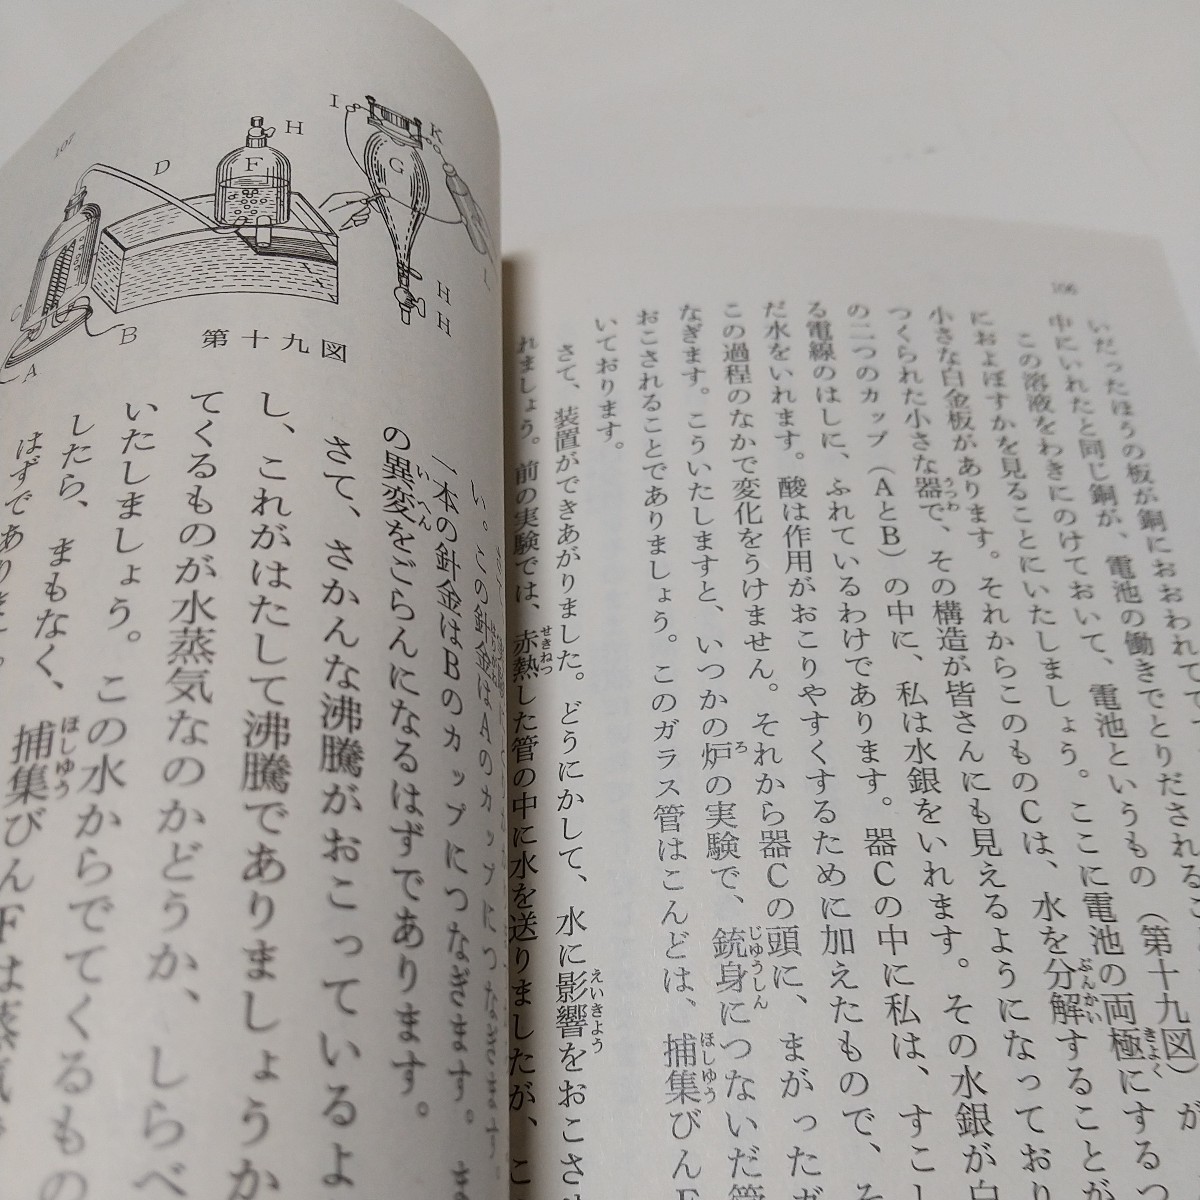 106
いだったほうの板が銅におおわれてで
中にいれたと同じ銅が、電池の働きでとりだされるこ
この溶液をわきにのけておいて、電池というもの（第十九図）が
におよぼすかを見ることにいたしましょう。ここに電池の両極にするつ
小さな白金板があります。それからこのものCは、水を分解することが
つくられた小さな器で、その構造が皆さんにも見えるようになっており
の二つのカップ（AとB）の中に、私は水銀をいれます。その水銀が白
る電線のはしに、ふれているわけであります。器Cの中に私は、すこし
だ水をいれます。酸は作用がおこりやすくするために加えたもので、そ
この過程のなかで変化をうけません。それから器Cの頭に、まがったガ
なぎます。こういたしますと、いつかの炉の実験で、銃身につないだ管
おこされることでありましょう。このガラス管はこんどは、捕集びんF
いております。
さて、装置ができあがりました。どうにかして、水に影響をおこさせ
れましょう。前の実験では、赤熱した管の中に水を送りましたが、こ
107
I
K
H
D
F
G
H
H
L
C
B
A
第十九図
い。この針金はAのカップにつなぎます。
一本の針金はBのカップにつなぎます。ま
の異変をごらんになるはずであります。
さて、さかんな沸騰がおこっているよ
し、これがはたして沸騰でありましょうか
てくるものが水蒸気なのかどうか、しらべ
いたしましょう。この水からでてくるもの
したら、まもなく、捕集びんFは蒸気で
はずであります。